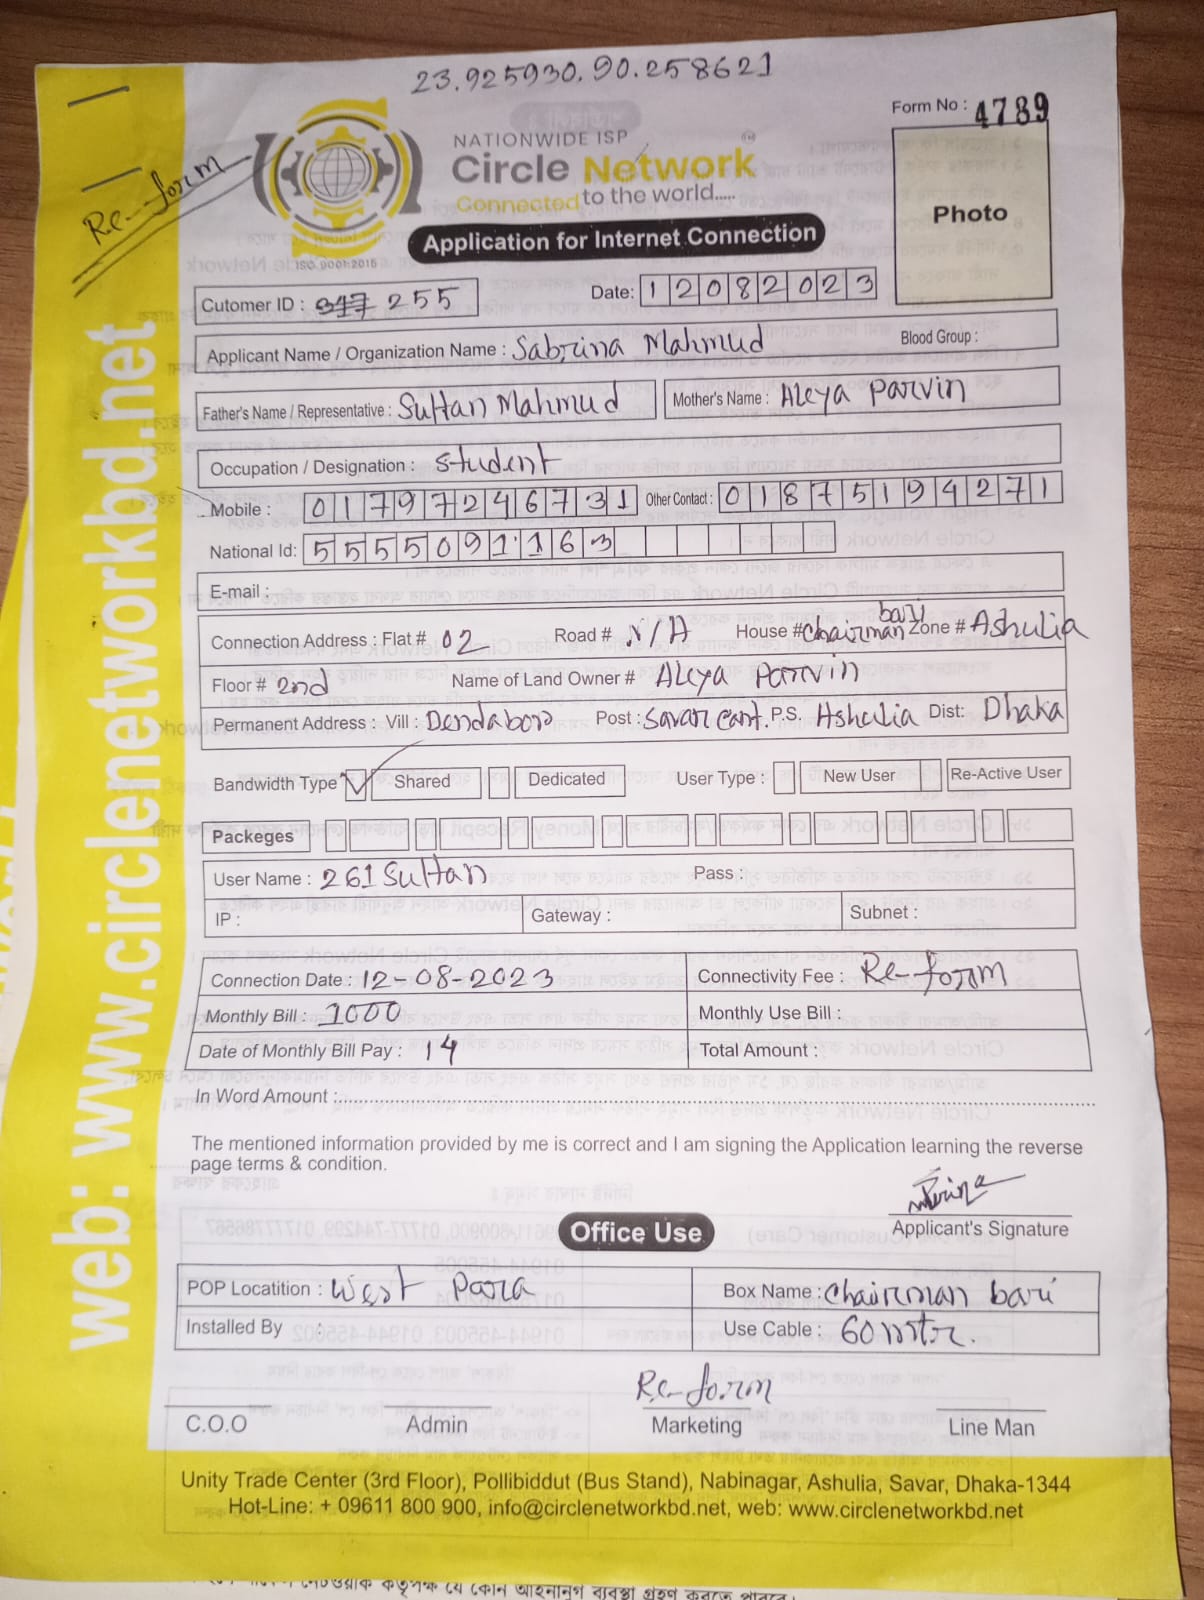 23.925930, 90.258621
Form No : 4789
Re-form
NATIONWIDE ISP
Circle Network
Connected to the world.....
ISO 9001:2015
Application for Internet Connection
Photo
Cutomer ID : 317 255
Date: 12082023
Applicant Name / Organization Name : Sabrina Mahmud Blood Group :
Father's Name / Representative : Sultan Mahmud Mother's Name : Aleya Parvin
Occupation / Designation : Student
Mobile : 01797246731 Other Contact : 01875194271
National Id: 5550911163
E-mail :
Connection Address : Flat # 02 Road # N/A House # Chairman bary Zone # Ashulia
Floor # 2nd Name of Land Owner # Aleya Parvin
Permanent Address : Vill : Dendabor Post : Savar Cant. P.S. Ashulia Dist: Dhaka
Bandwidth Type Shared Dedicated User Type : New User Re-Active User
Packeges
User Name : 261 Sultan Pass :
IP : Gateway : Subnet :
Connection Date : 12-08-2023 Connectivity Fee : Re-form
Monthly Bill : 1000 Monthly Use Bill :
Date of Monthly Bill Pay : 14 Total Amount :
In Word Amount :
The mentioned information provided by me is correct and I am signing the Application learning the reverse
page terms & condition.
Applicant's Signature
Office Use
POP Locatition : West Para Box Name : Chairman bari
Installed By : Use Cable : 60 mtr.
Re-form
C.O.O Admin Marketing Line Man
Unity Trade Center (3rd Floor), Pollibiddut (Bus Stand), Nabinagar, Ashulia, Savar, Dhaka-1344
Hot-Line: + 09611 800 900, info@circlenetworkbd.net, web: www.circlenetworkbd.net
web: www.circlenetworkbd.net